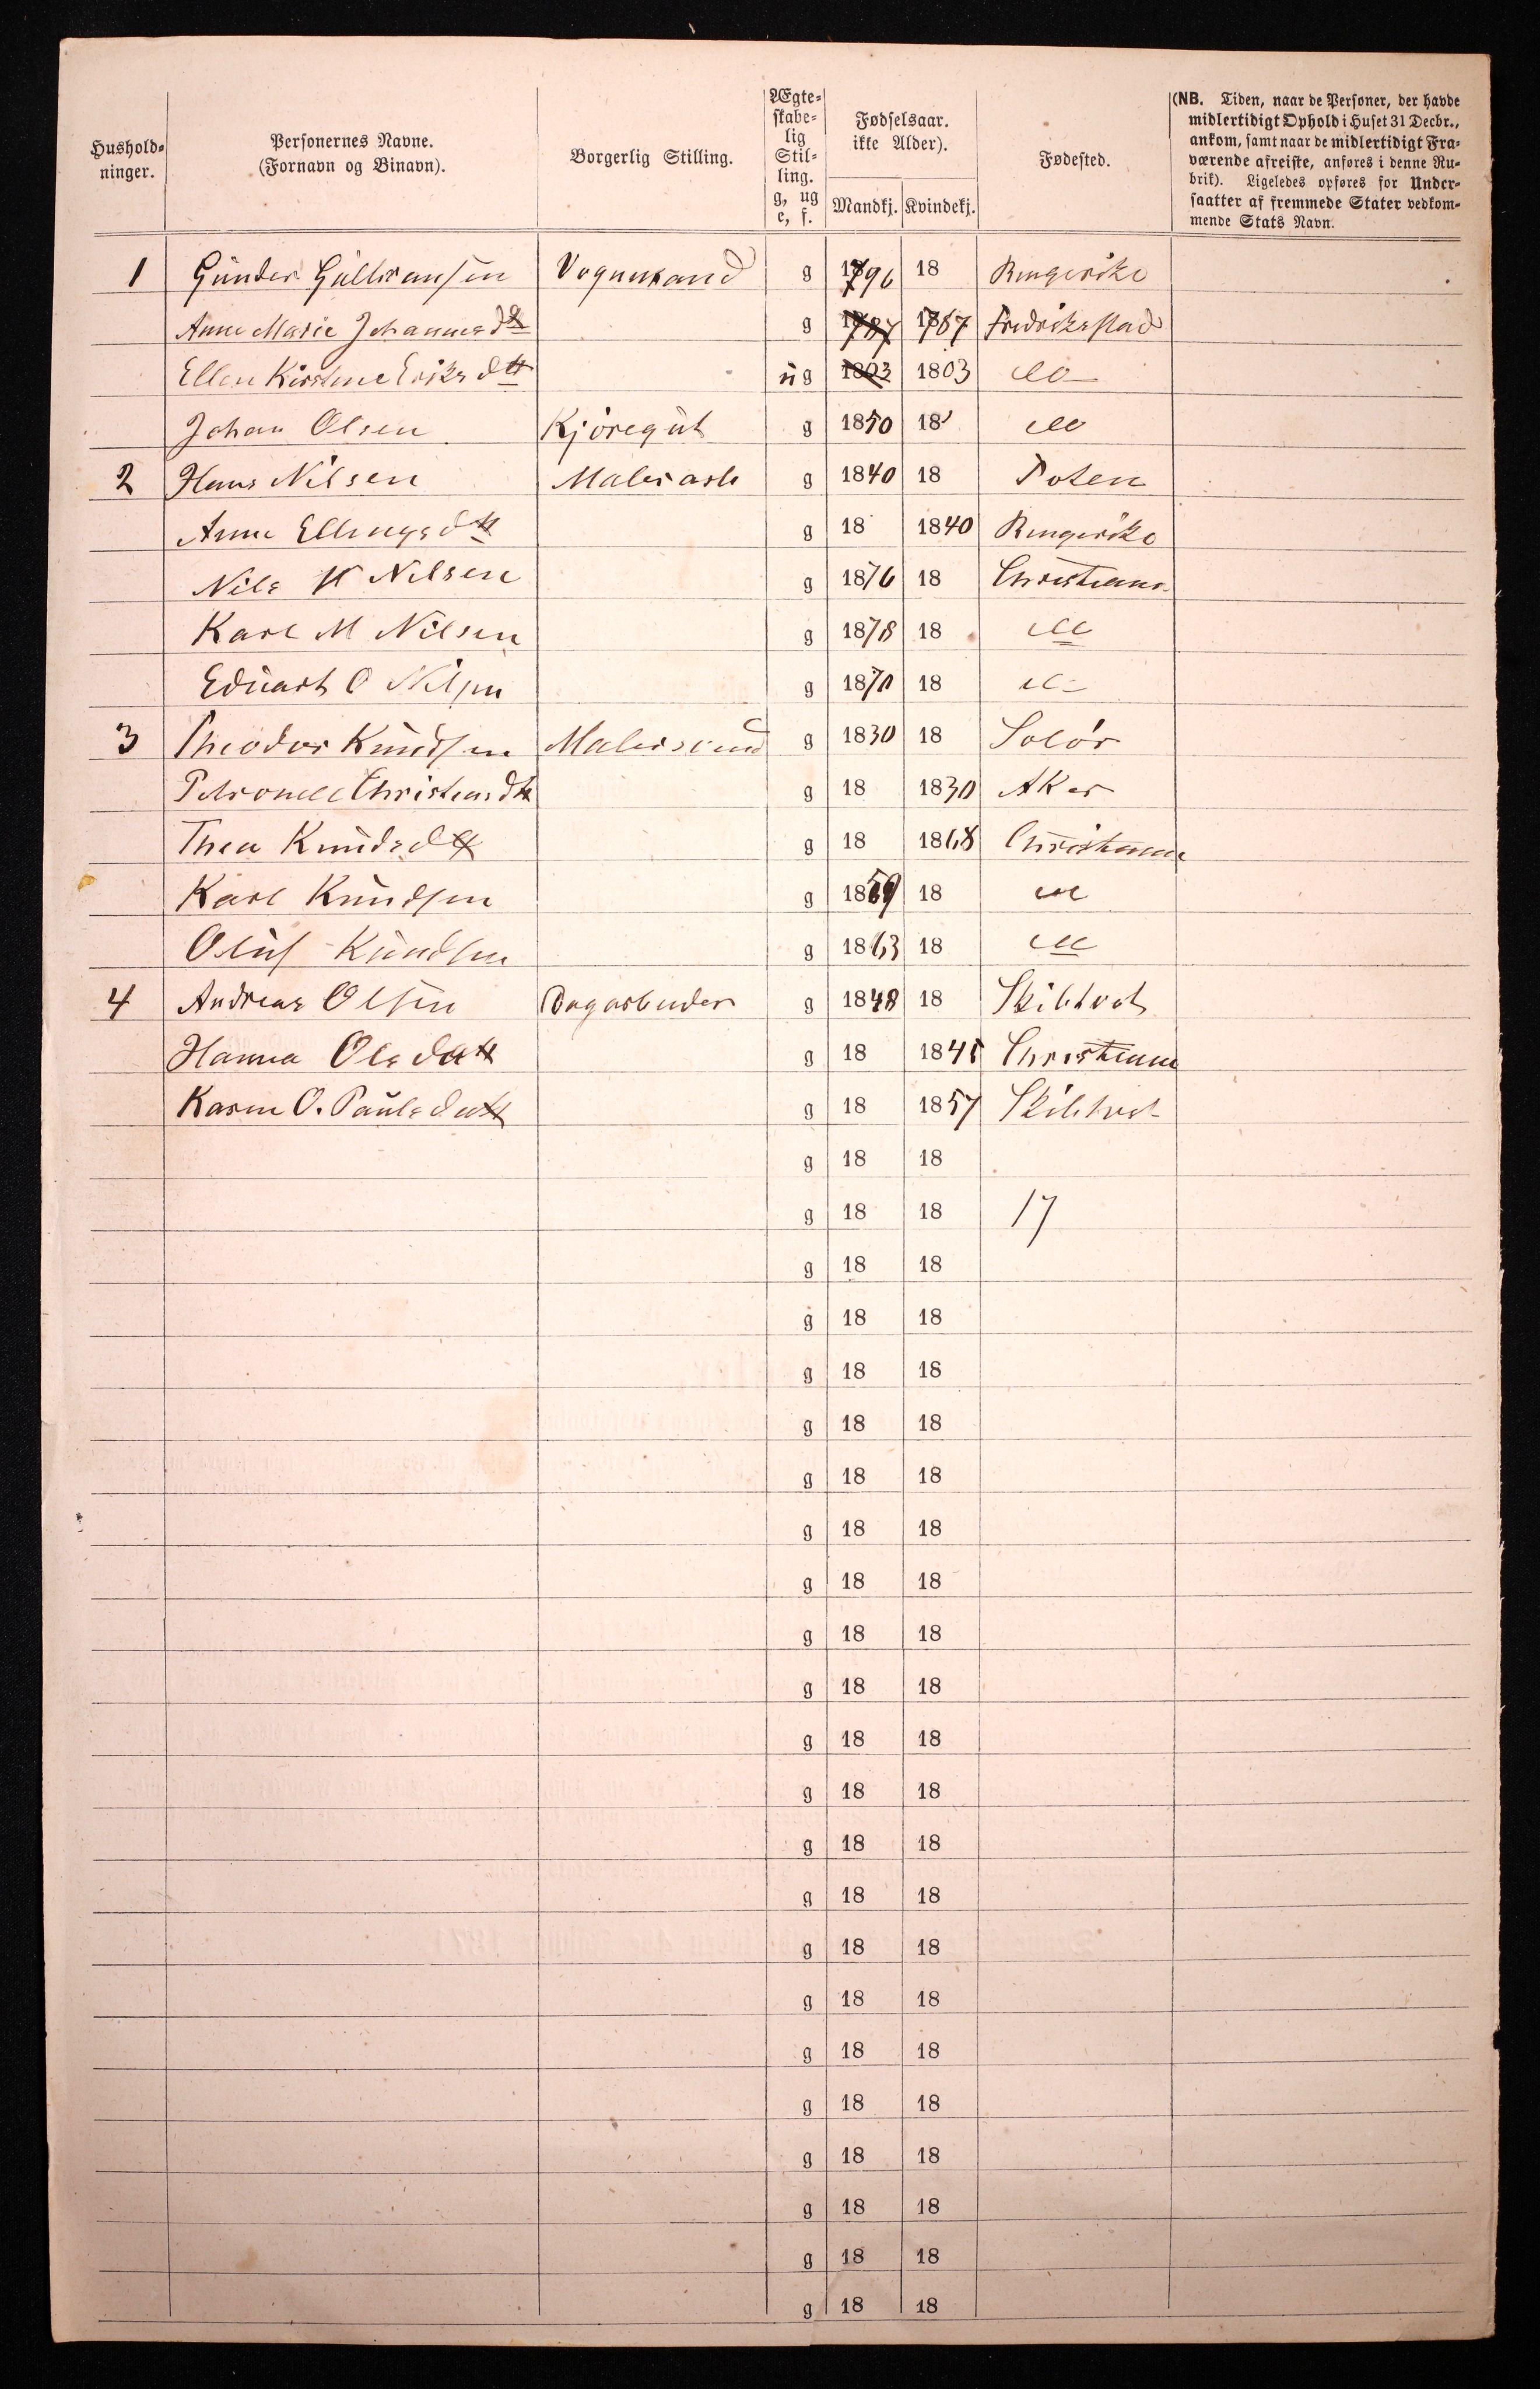 Hushold-
ninger.
Personernes Navne.
(Fornavn og Binavn).
Borgerlig Stilling.
Ægte-
skabe-
lig
Stil-
ling.
g, ug
e, f.
Fødselsaar.
ikke Alder).
Mandkj. Kvindekj.
Fødested.
(NB. Tiden, naar de Personer, der havde
midlertidigt Ophold i Huset 31 Decbr.,
ankom, samt naar de midlertidigt Fra-
værende afreiste, anføres i denne Ru-
brik). Ligeledes opføres for Under-
saatter af fremmede Stater vedkom-
mende Stats Navn.
1 Gunder Gulbransen Vognmand g 1796 18 Ringerike
Anne Marie Johannesdtt g 1787 1787 Fredrikstad
Ellen Kirstine Eriksdtt ug 1803 1803 do
Johan Olsen Kjøregut g 1850 18 do
2 Hans Nilsen g 1840 18 Toten
Anne Ellingsdtt g 18 1840 Ringerike
Nils H Nilsen g 1876 18 Christiania
Karl M Nilsen g 1878 18 do
Eduart O Nilsen g 1870 18 do
3 Theodor Knudsen Malersvend g 1830 18 Solør
Petronelle Christensdtt g 18 1830 Aker
Thea Knudsdtt g 18 1868 Christiania
Karl Knudsen g 1859 18 do
Oluf Knudsen g 1863 18 do
4 Andreas Olsen Dagarbeider g 1848 18 Skibtvet
Hanna Olsdatt g 18 1845 Christiania
Karen O. Paulsdatt g 18 1857 Skibtvet
g 18 18
g 18 18 17
g 18 18
g 18 18
g 18 18
g 18 18
g 18 18
g 18 18
g 18 18
g 18 18
g 18 18
g 18 18
g 18 18
g 18 18
g 18 18
g 18 18
g 18 18
g 18 18
g 18 18
g 18 18
g 18 18
g 18 18
g 18 18